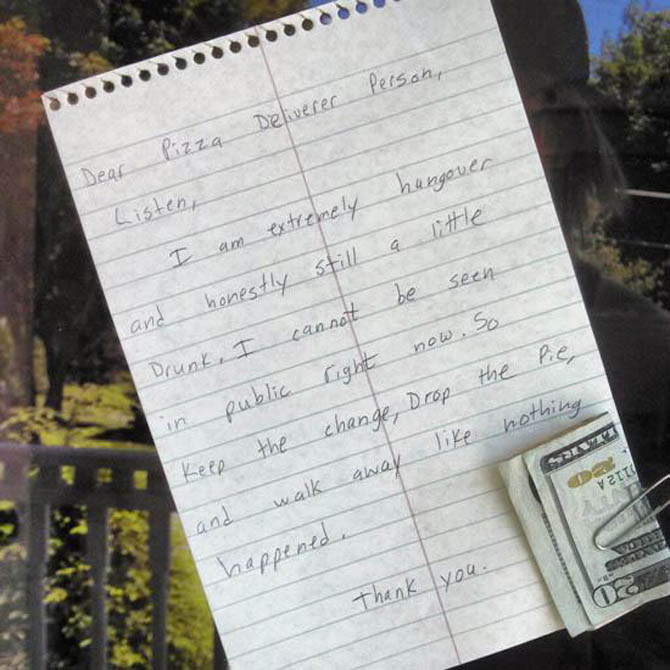 Dear Pizza Deliverer Person,
Listen,
I am extremely hangover
and honestly still a little
Drunk. I cannot be seen
in public right now. So
Keep the change, Drop the Pie,
and walk away like nothing
happened.
Thank you.
20
20